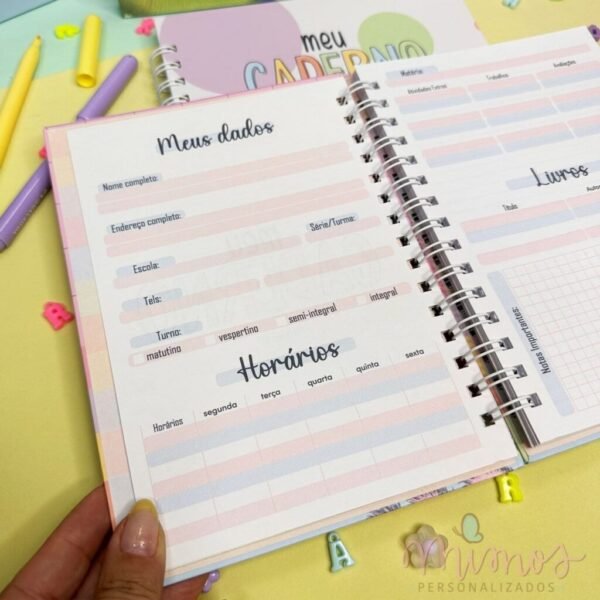 meu
CADERNO
Meus dados
Nome completo:
Endereço completo:
Série/Turma:
Escola:
Tels:
Turno:
matutino vespertino semi-integral integral
Horários
Horários segunda terça quarta quinta sexta
Matéria
Atividades Extras Trabalhos Avaliações
Livros
Título Autor
Notas Importantes:
R
A
Mimos
PERSONALIZADOS